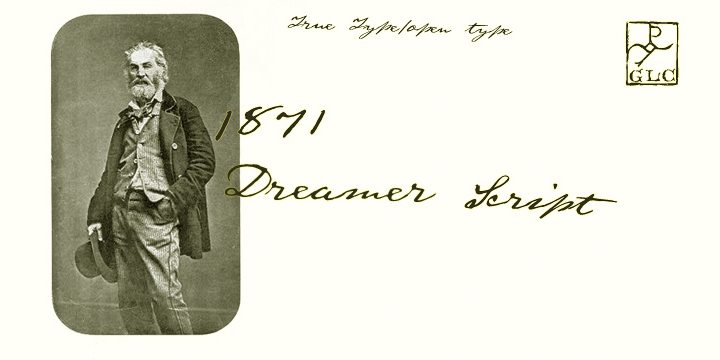 True Type/open type
GLC
1871
Dreamer Script